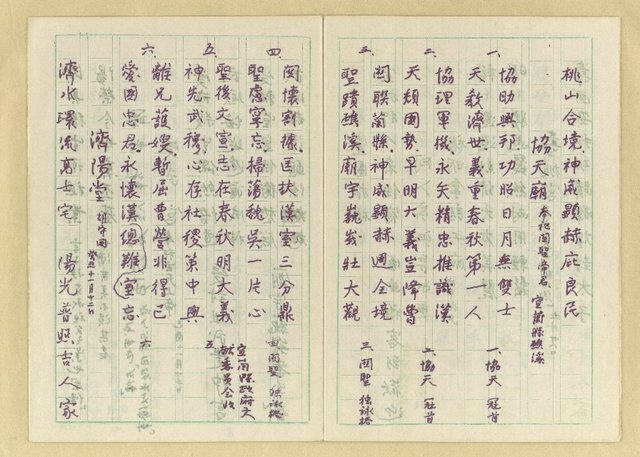 桃山合境神威顯赫庇良民
協天廟 奉祀関聖帝君 宜蘭縣礁溪
一、協助興邦功昭日月無雙士
天教濟世義重春秋第一人 一、協天 冠首
二、協理軍機永矢精忠推識漢
天頹國勢早明大義豈降曹 二、協天 冠首
三、関聯蘭縣神威顯赫週全境
聖蹟礁溪廟宇巍峩壯大觀 三、関聖 独咏格
四、関懷割據匡扶漢室三分鼎
聖慮寧忘掃蕩魏吳一片心 四 関聖 独咏格
五、聖後文宣志在春秋明大義
神先武穆心存社稷第中興 五、宜蘭縣政府文獻委員会收
六 離兄護嫂暫居曹營非得已
愛國忠君永懷漢總難室忘 六
濟陽堂 胡守囬 癸丑十一月十二日
濟水環流高士宅 陽光普照吉人家